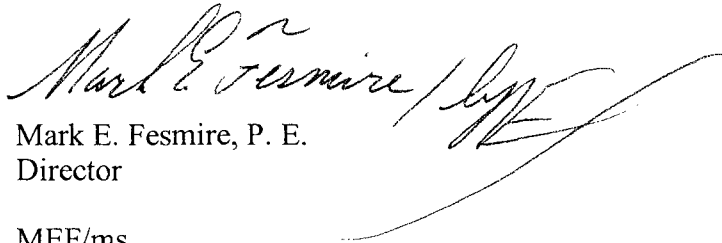 Mark E. Fesmire /
Mark E. Fesmire, P. E.
Director
MEF/ms